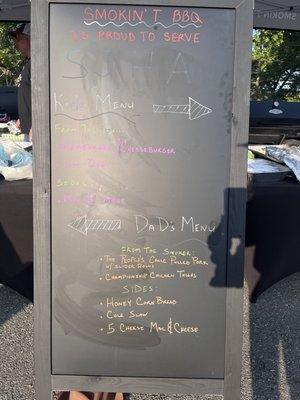 SMOKIN'T BBQ
IS PROUD TO SERVE
MENU
FROM THE
CHEESEBURGER
DAD'S MENU
FROM THE SMOKER:
• THE PEOPLE'S CHOICE PULLED PORK
W/ SLIDER BUNS
• CHAMPIONSHIP CHICKEN THIGHS
SIDES:
• HONEY CORN BREAD
• COLE SLAW
• 5 CHEESE MAC & CHEESE